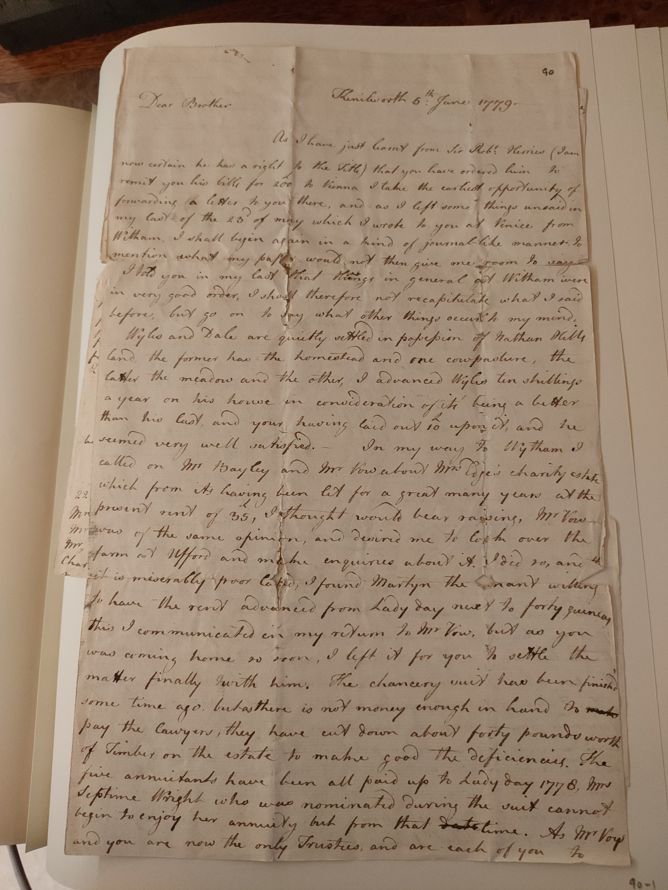 90
Dear Brother
Kenilworth 5th June 1779.
As I have just learnt from Sir Robt. Herries (I am
now certain he has a right to the Title) that you have ordered him to
remit you his bills for 200 to Vienna I take the earliest opportunity of
forwarding a letter to you there, and as I left some things unsaid in
my last of the 23d of may which I wrote to you at Venice from
Witham, I shall begin again in a kind of journal-like manner to
mention what my paper would not then give me room to say
I told you in my last that things in general at Witham were
in very good order, I shall therefore not recapitulate what I said
before, but go on to say what other things occur to my mind.
Wyles and Dale are quietly settled in possession of Nathan Hibbs
land the former has the homestead and one cowpasture, the
latter the meadow and the other, I advanced Wyles ten shillings
a year on his house in consideration of its being a better
than his last, and your having laid out 10 upon it, and he
seemed very well satisfied. — In my way to Wytham I
called on Mr Bayley and Mr Vow about Mrs charity estate
which from its having been let for a great many years at the
present rent of 35, I thought would bear raising, Mr Vow
was of the same opinion, and desired me to look over the
farm at Ufford and make enquiries about it. I did so, and
it is miserably poor land, I found Martyn the tenant willing
to have the rent advanced from Lady day next to forty guineas
this I communicated in my return to Mr Vow, but as you
was coming home so soon, I left it for you to settle the
matter finally with him. The chancery suit has been finish'd
some time ago, but as there is not money enough in hand to make
pay the Lawyers, they have cut down about forty pounds worth
of Timber on the estate to make good the deficiency. The
five annuitants have been all paid up to Lady day 1778. Mrs
Septime Wright who was nominated during the suit cannot
begin to enjoy her annuity but from that date time. As Mr Vow
and you are now the only Trustees, and are each of you to
22
Mr
Mr
Mr
Char
90-1